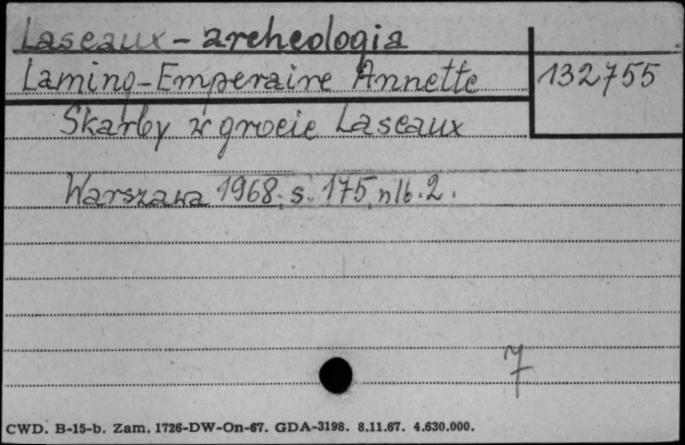 Lascaux - archeologia
Laming-Emperaire Annette 132755
Skarby w grocie Lascaux
Warszawa 1968. s. 175, nlb. 2.
7
CWD. B-15-b. Zam. 1726-DW-On-67. GDA-3198. 8.11.67. 4.630.000.